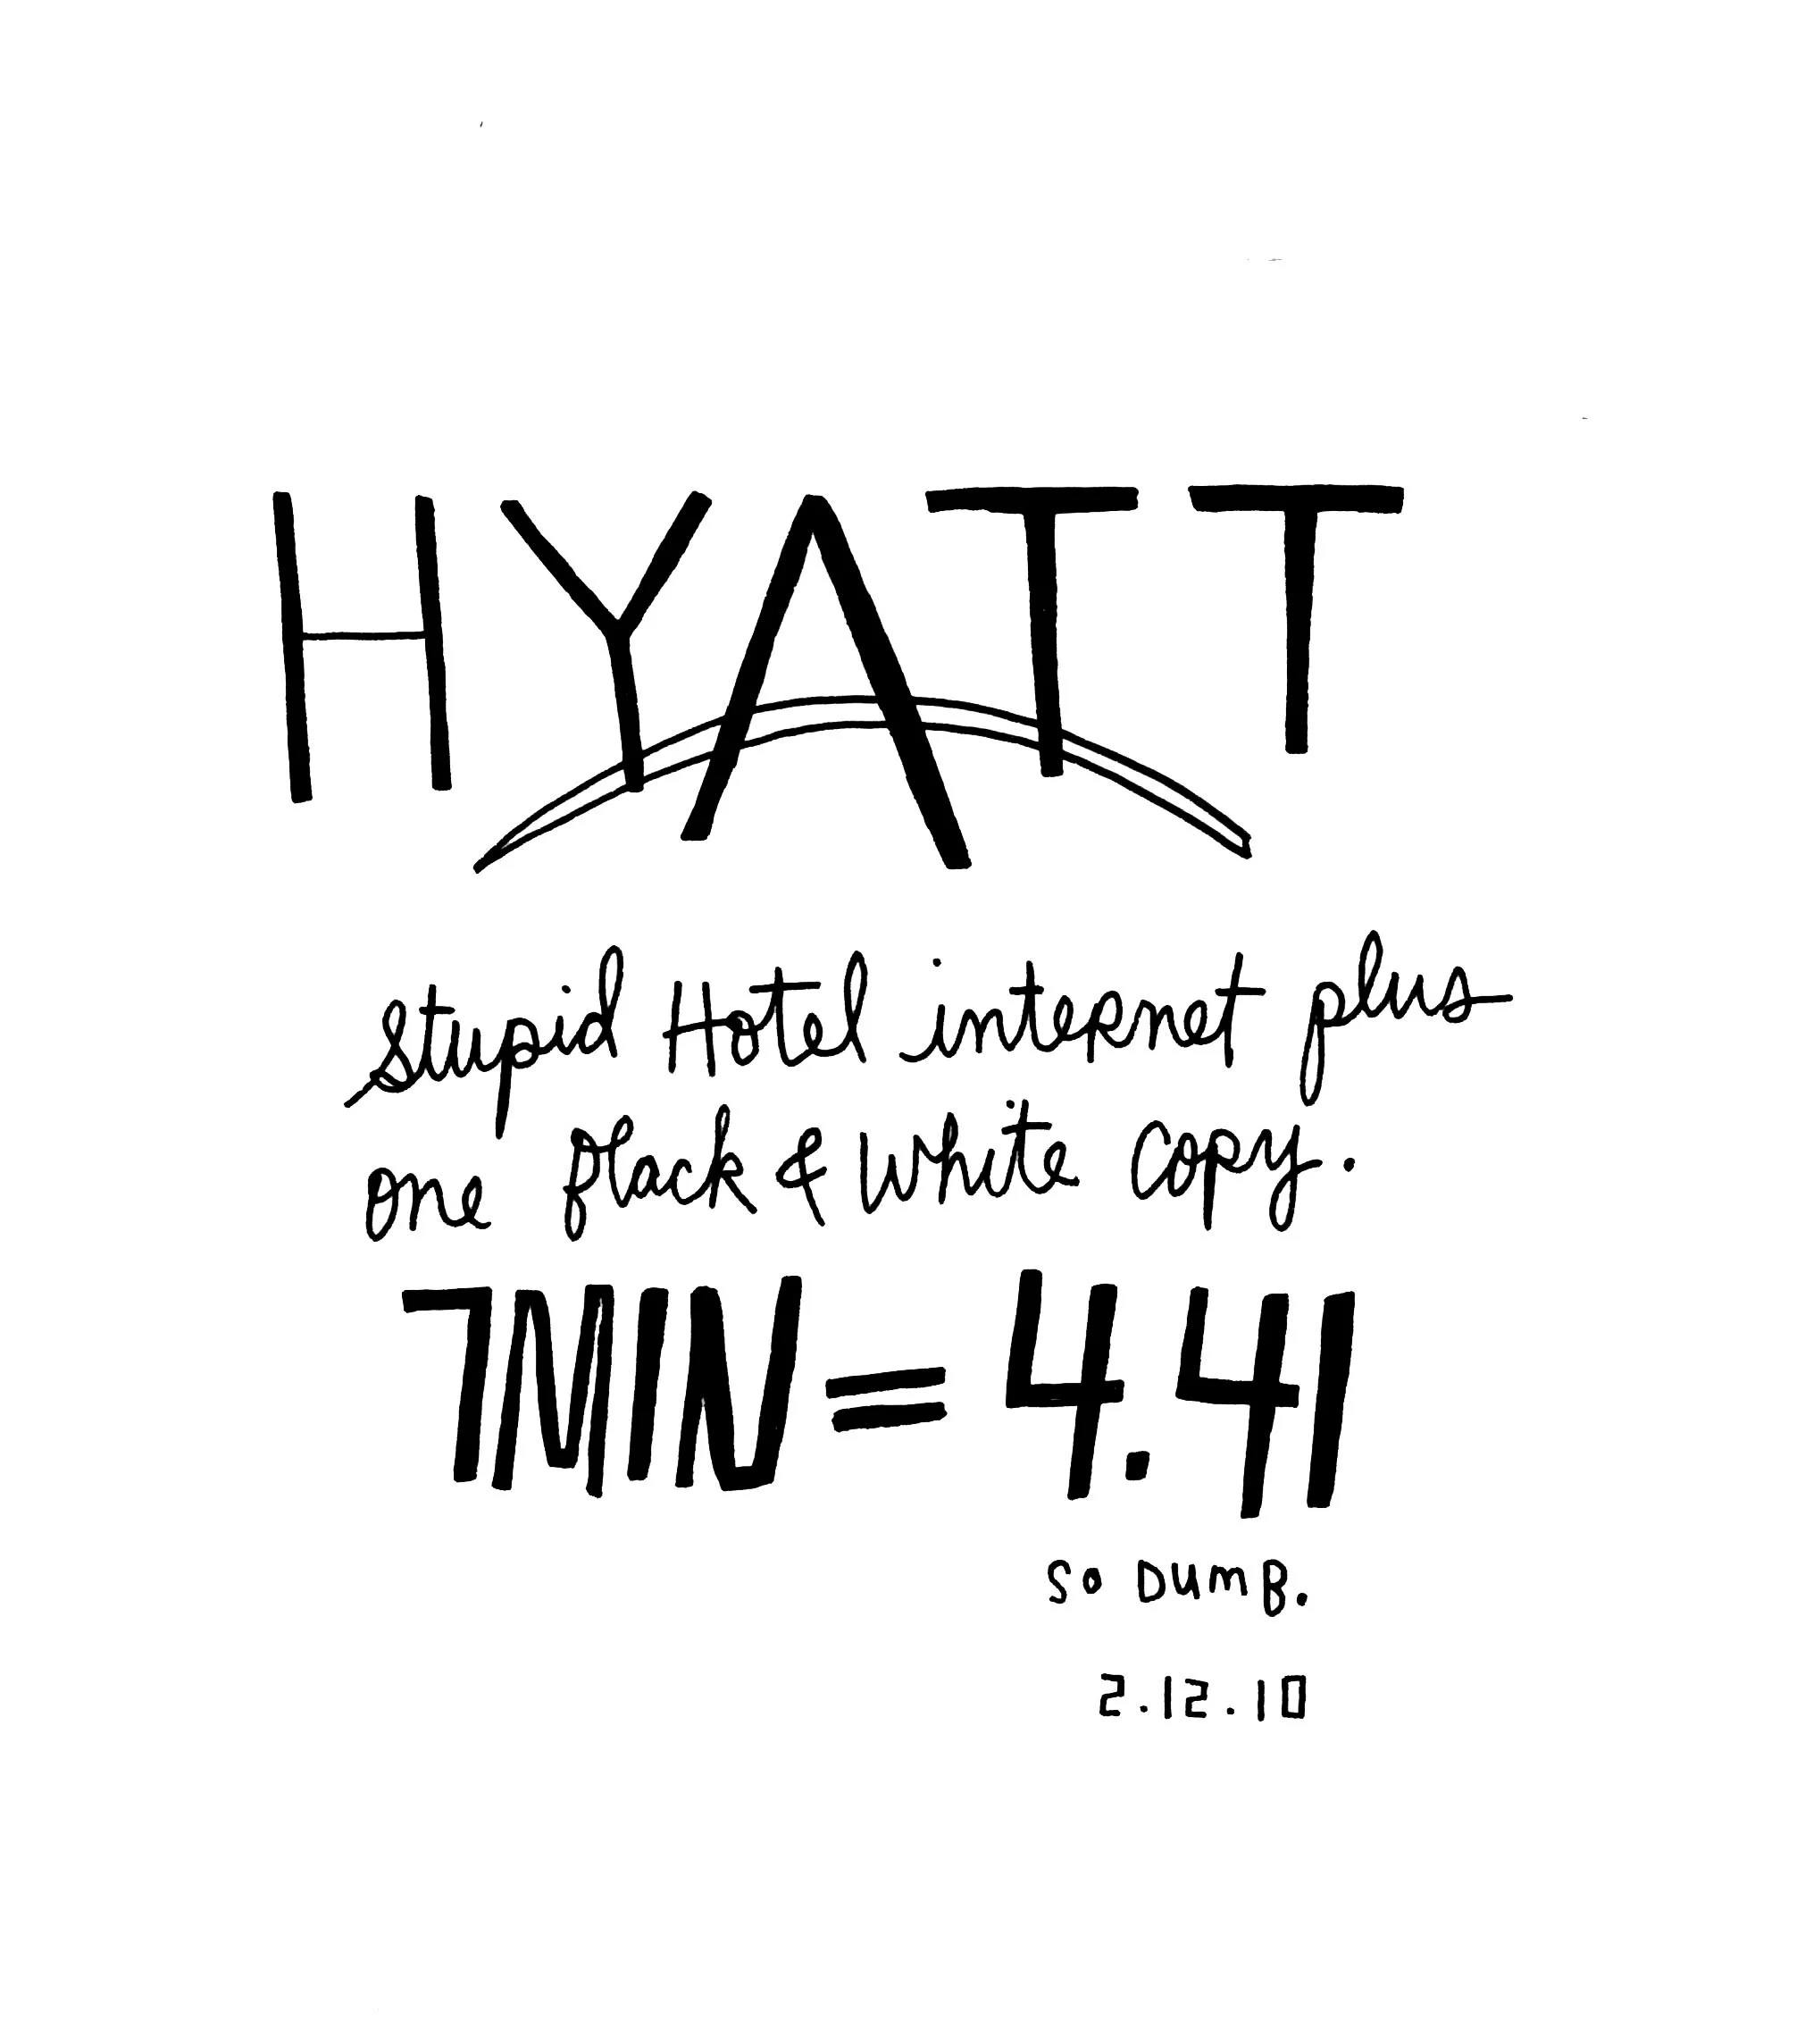 HYATT
stupid Hotel internet plus
one black & white copy.
7MIN = 4.41
SO DUMB.
2.12.10